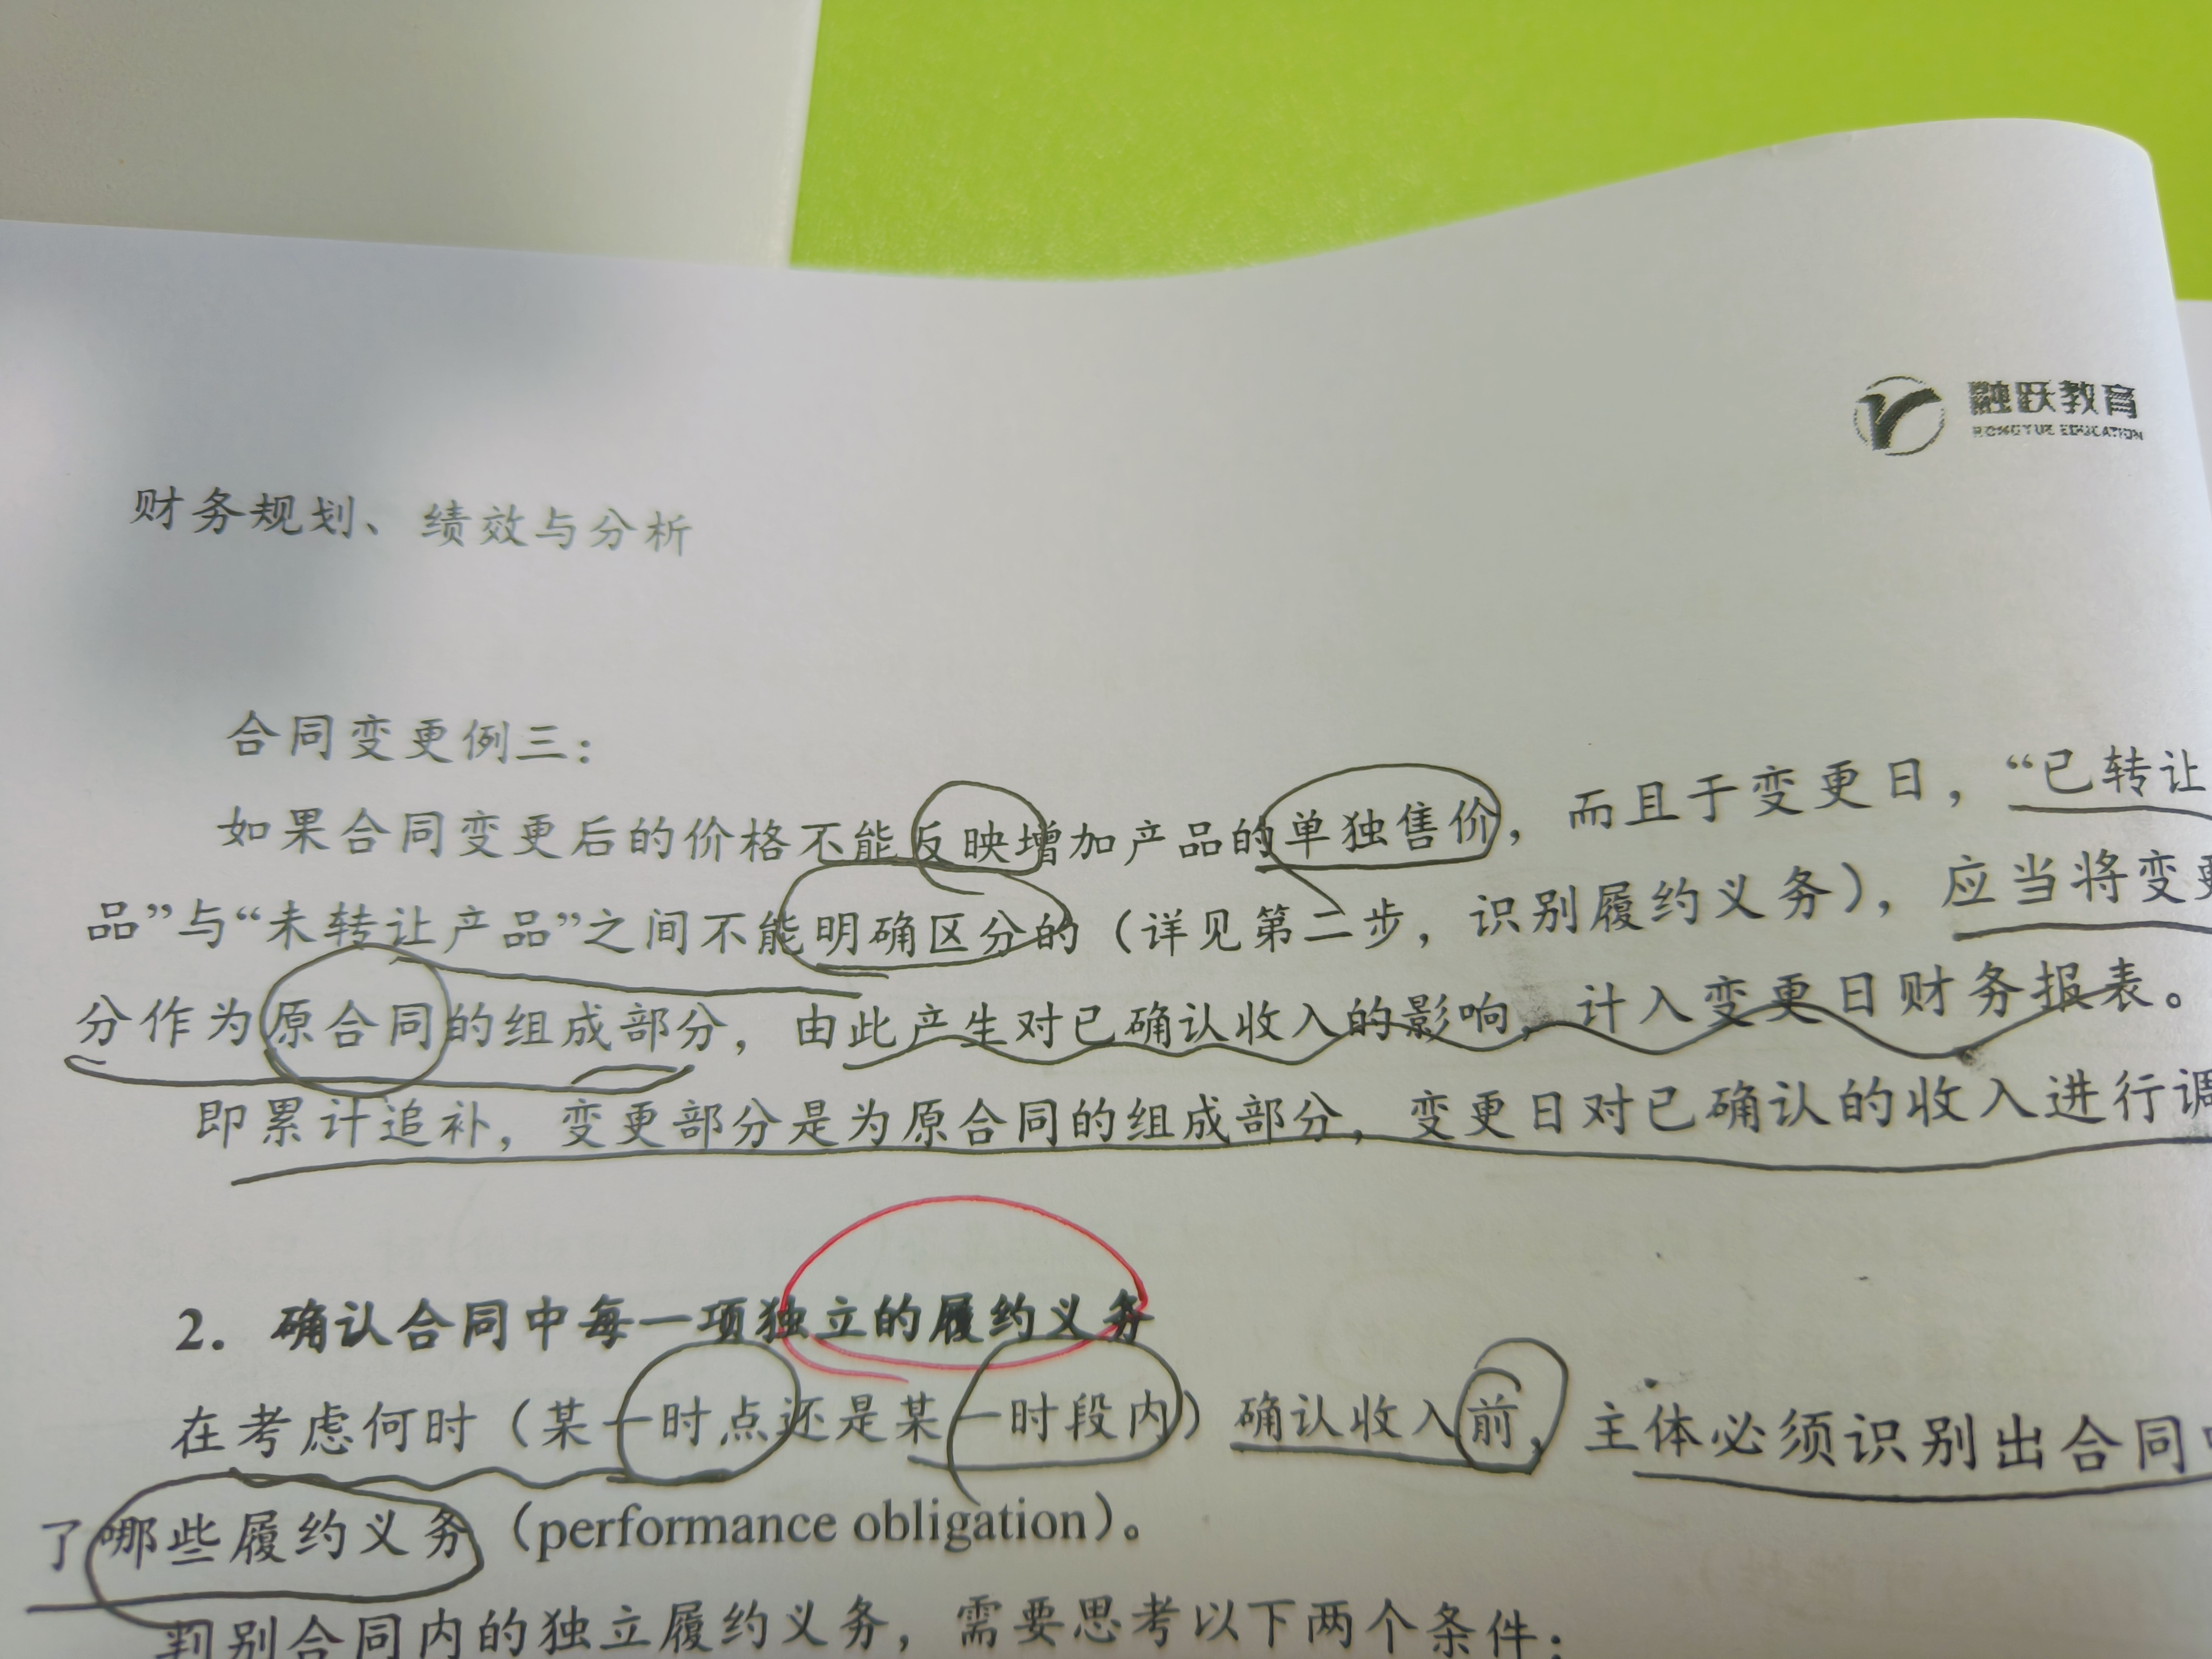 融跃教育
RONGYUE EDUCATION
财务规划、绩效与分析
合同变更例三：
如果合同变更后的价格不能反映增加产品的单独售价，而且于变更日，“已转让
品”与“未转让产品”之间不能明确区分的（详见第二步，识别履约义务），应当将变更
分作为原合同的组成部分，由此产生对已确认收入的影响，计入变更日财务报表。
即累计追补，变更部分是为原合同的组成部分，变更日对已确认的收入进行调
2. 确认合同中每一项独立的履约义务
在考虑何时（某一时点还是某一时段内）确认收入前，主体必须识别出合同
了哪些履约义务（performance obligation）。
判别合同内的独立履约义务，需要思考以下两个条件：